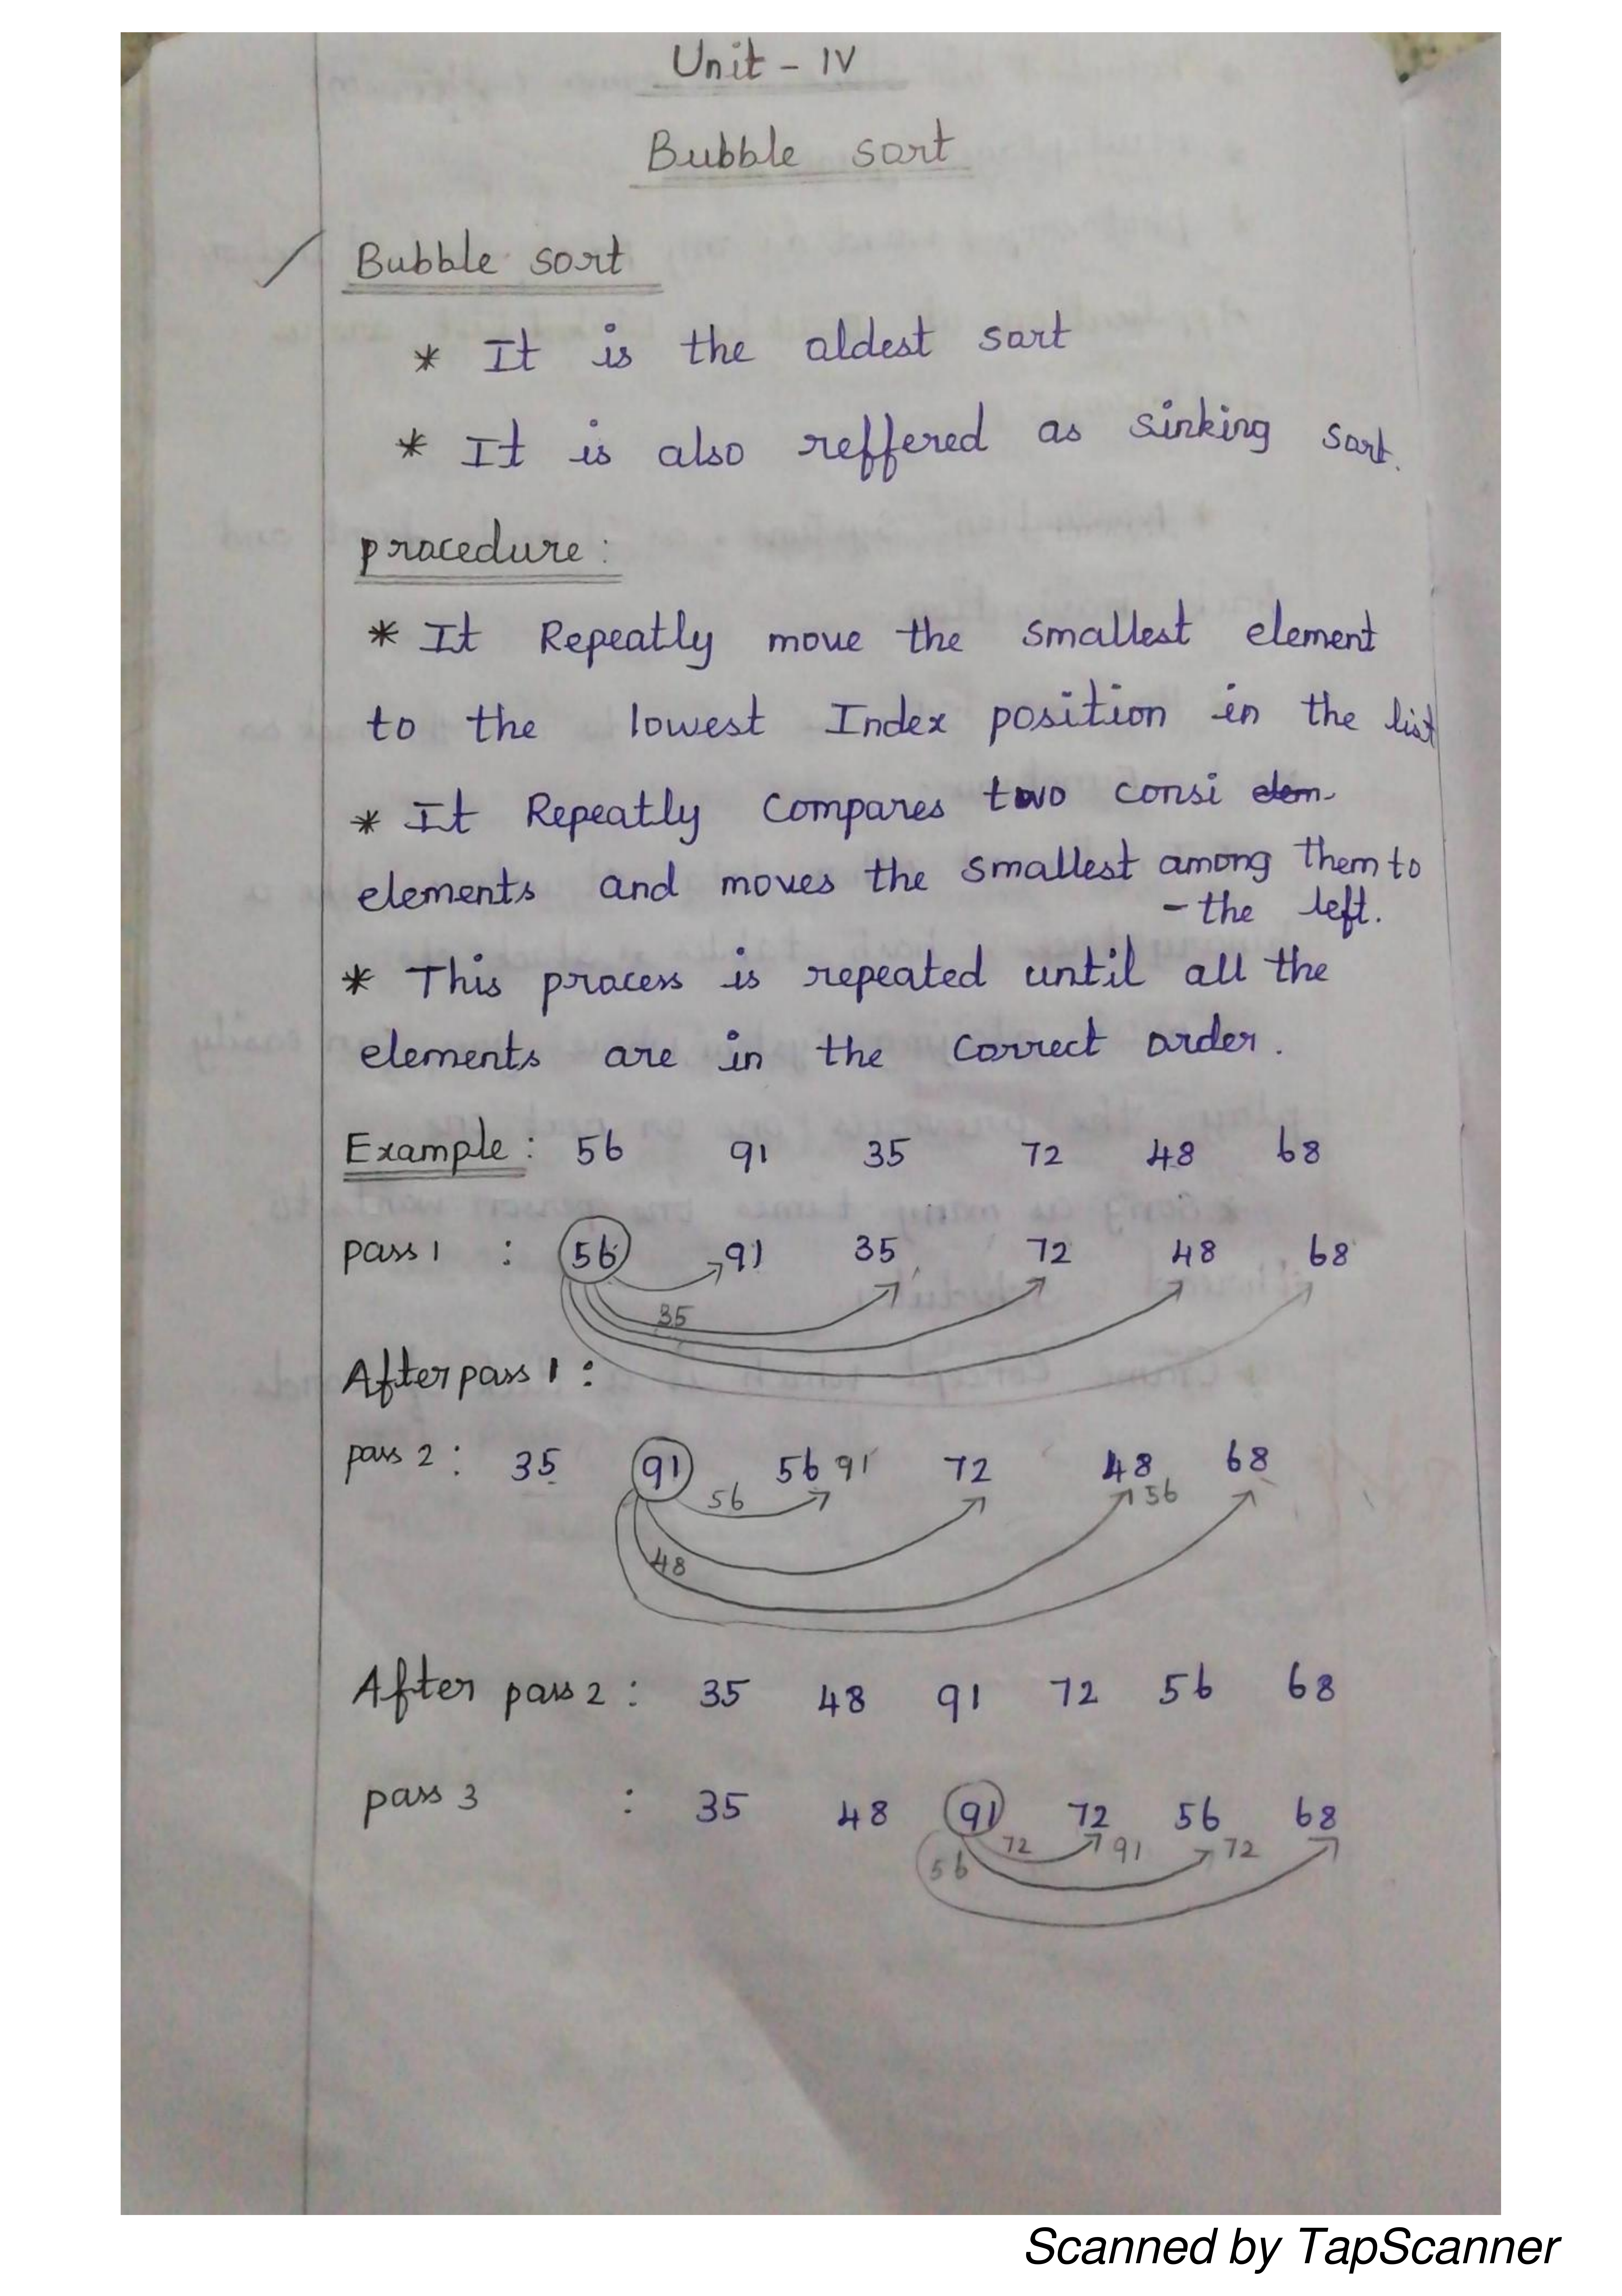 Unit - IV
Bubble sort
Bubble sort
* It is the oldest sort
* It is also reffered as sinking sort.
procedure:
* It Repeatly move the smallest element
to the lowest Index position in the list
* It Repeatly Compares two consi elem
elements and moves the smallest among them to
- the left.
* This process is repeated until all the
elements are in the correct order.
Example: 56 91 35 72 48 68
pass 1 : 56 91 35 72 48 68
35
After pass 1 :
pass 2 : 35 91 56 91 72 48 68
56 56
48
After pass 2 : 35 48 91 72 56 68
pass 3 : 35 48 91 72 56 68
72 91 72
56
Scanned by TapScanner